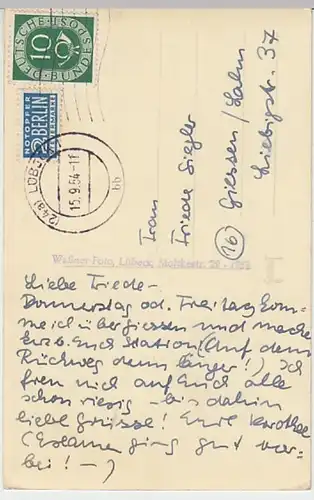 DEUTSCHE BUNDESPOST
10
NOTOPFER
2 BERLIN
STEUERMARKE
(24a) LÜBECK
15.9.54-11
bb
Frau
Friede Siegler
(16) Giessen/Lahn
Liebigstr. 37
Liebe Friede -
Donnerstag od. Freitag kom-
me ich über Giessen und mache
kurz b. Euch Station (Auf dem
Rückweg dann länger!) Ich
freu mich auf Euch alle
schon riesig - bis dahin
liebe Grüsse! Eure Dorothee
(Examen ging gut vor-
bei! -)